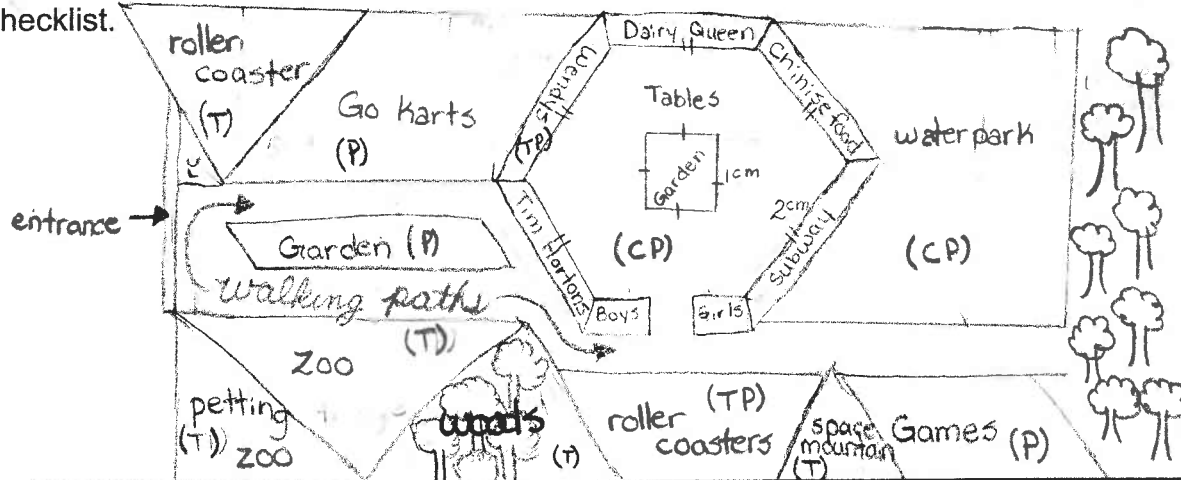 hecklist.
roller
coaster
(T)
Go Karts
(P)
Wendys
(TP)
Dairy Queen
Chinise food
Tables
Garden
1cm
2cm
(CP)
Subway
Tim Hortons
Boys
Girls
waterpark
(CP)
entrance
Garden (P)
walking paths
(T)
Zoo
petting
(T)
zoo
woods
(T)
roller
coasters
(TP)
space
mountain
(T)
Games
(P)